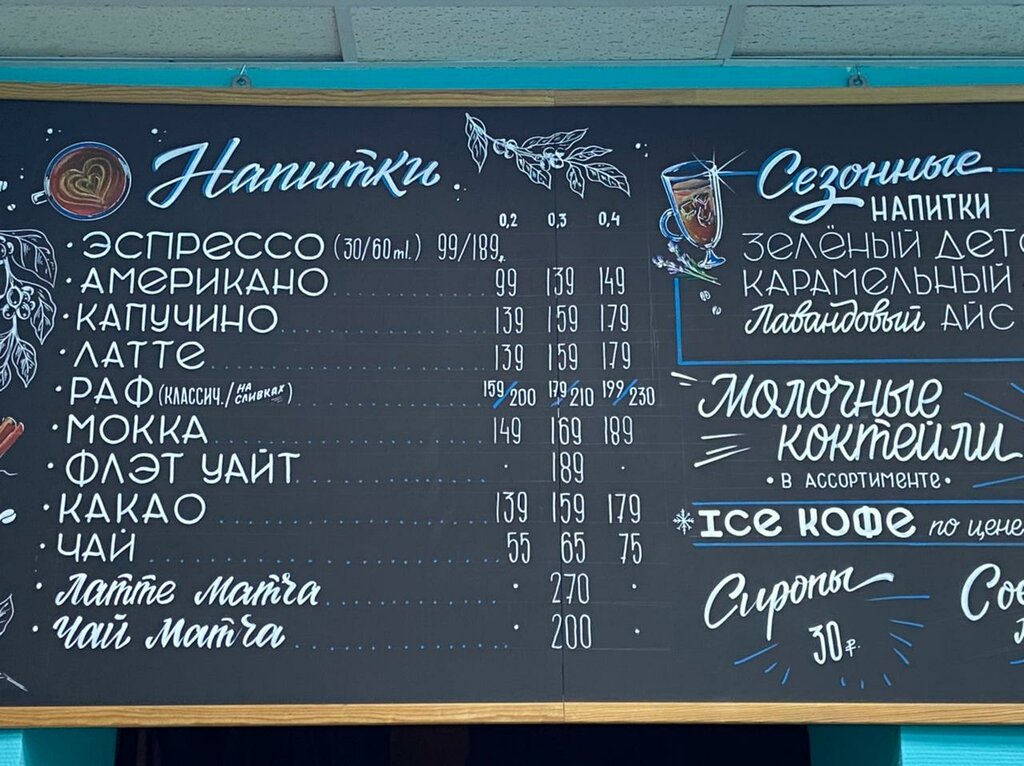 Напитки
0,2 0,3 0,4
• ЭСПРЕССО (30/60ml.) 99/189₽
• АМЕРИКАНО 99 139 149
• КАПУЧИНО 139 159 179
• ЛАТТЕ 139 159 179
• РАФ (КЛАССИЧ./НА СЛИВКАХ) 159/200 179/210 199/230
• МОККА 149 169 189
• ФЛЭТ УАЙТ • 189 •
• КАКАО 139 159 179
• ЧАЙ 55 65 75
• Латте Матча • 270 •
• Чай Матча • 200 •
Сезонные
НАПИТКИ
ЗЕЛЁНЫЙ
КАРАМЕЛЬНЫЙ
Лавандовый АЙС
Молочные
коктейли
• В АССОРТИМЕНТЕ •
ICE КОФЕ по цене
Сиропы
30₽